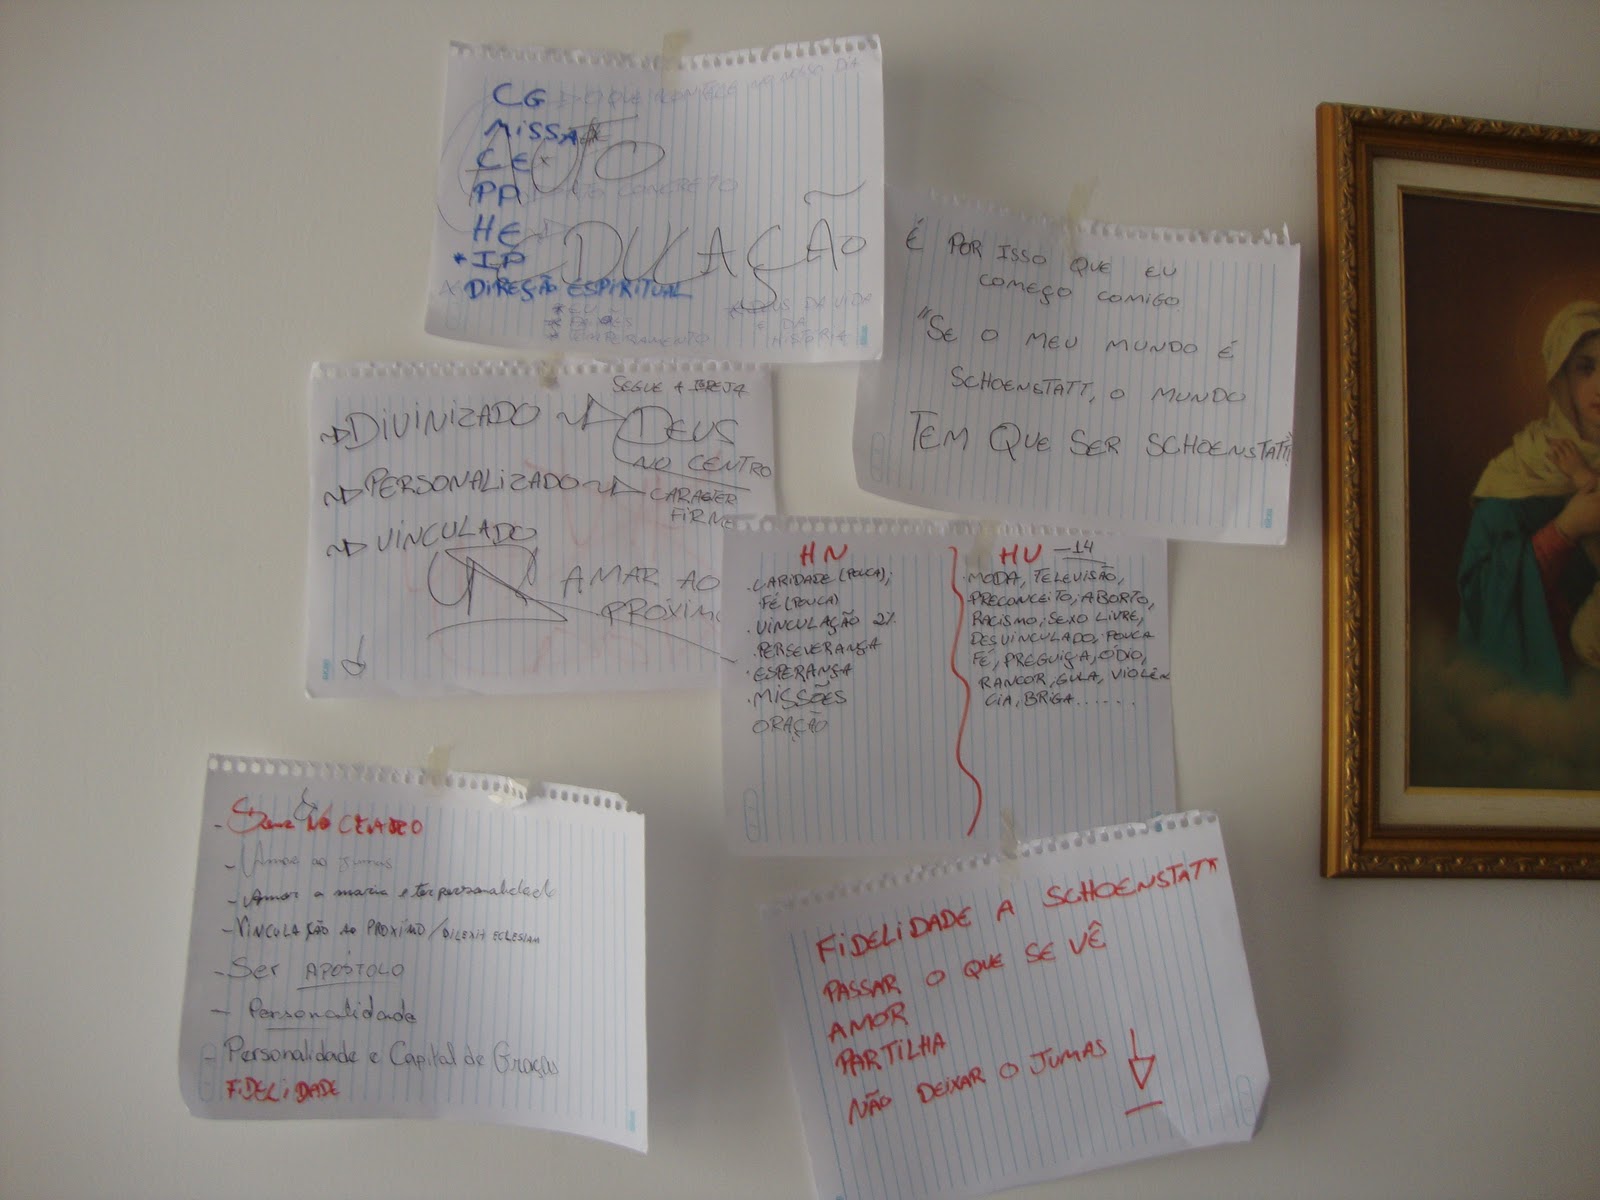 CG O QUE ACONTECE NO NOSSO DIA
MISSA
CE
PP ATO CONCRETO
HE
* IP
AUTO
EDUCAÇÃO
DIREÇÃO ESPIRITUAL
* EU
* PAIXÕES
* TEMPERAMENTO
* DEUS DA VIDA
E DA
HISTÓRIA
É POR ISSO QUE EU
COMEÇO COMIGO
"SE O MEU MUNDO É
SCHOENSTATT, O MUNDO
TEM QUE SER SCHOENSTATT"
SEGUE A IGREJA
DIVINIZADO DEUS
NO CENTRO
PERSONALIZADO CARACTER
FIRME
VINCULADO
AMAR AO
PRÓXIMO
HN
. CARIDADE (POUCA);
. FÉ (POUCA)
. VINCULAÇÃO 2%
. PERSEVERANÇA
. ESPERANÇA
. MISSÕES
ORAÇÃO
HV -14
MODA, TELEVISÃO,
PRECONCEITO, ABORTO,
RACISMO, SEXO LIVRE,
DESVINCULADO, POUCA
FÉ, PREGUIÇA, ÓDIO,
RANCOR, GULA, VIOLÊN
CIA, BRIGA......
- NO CENTRO
- Amor ao Jumas
- Amor a maria e ter personalidade
- VINCULAÇÃO AO PRÓXIMO / DILEXIT ECLESIAM
- Ser APÓSTOLO
- Personalidade
- Personalidade e Capital de Graças
FIDELIDADE
FIDELIDADE A SCHOENSTATT
PASSAR O QUE SE VÊ
AMOR
PARTILHA
NÃO DEIXAR O JUMAS